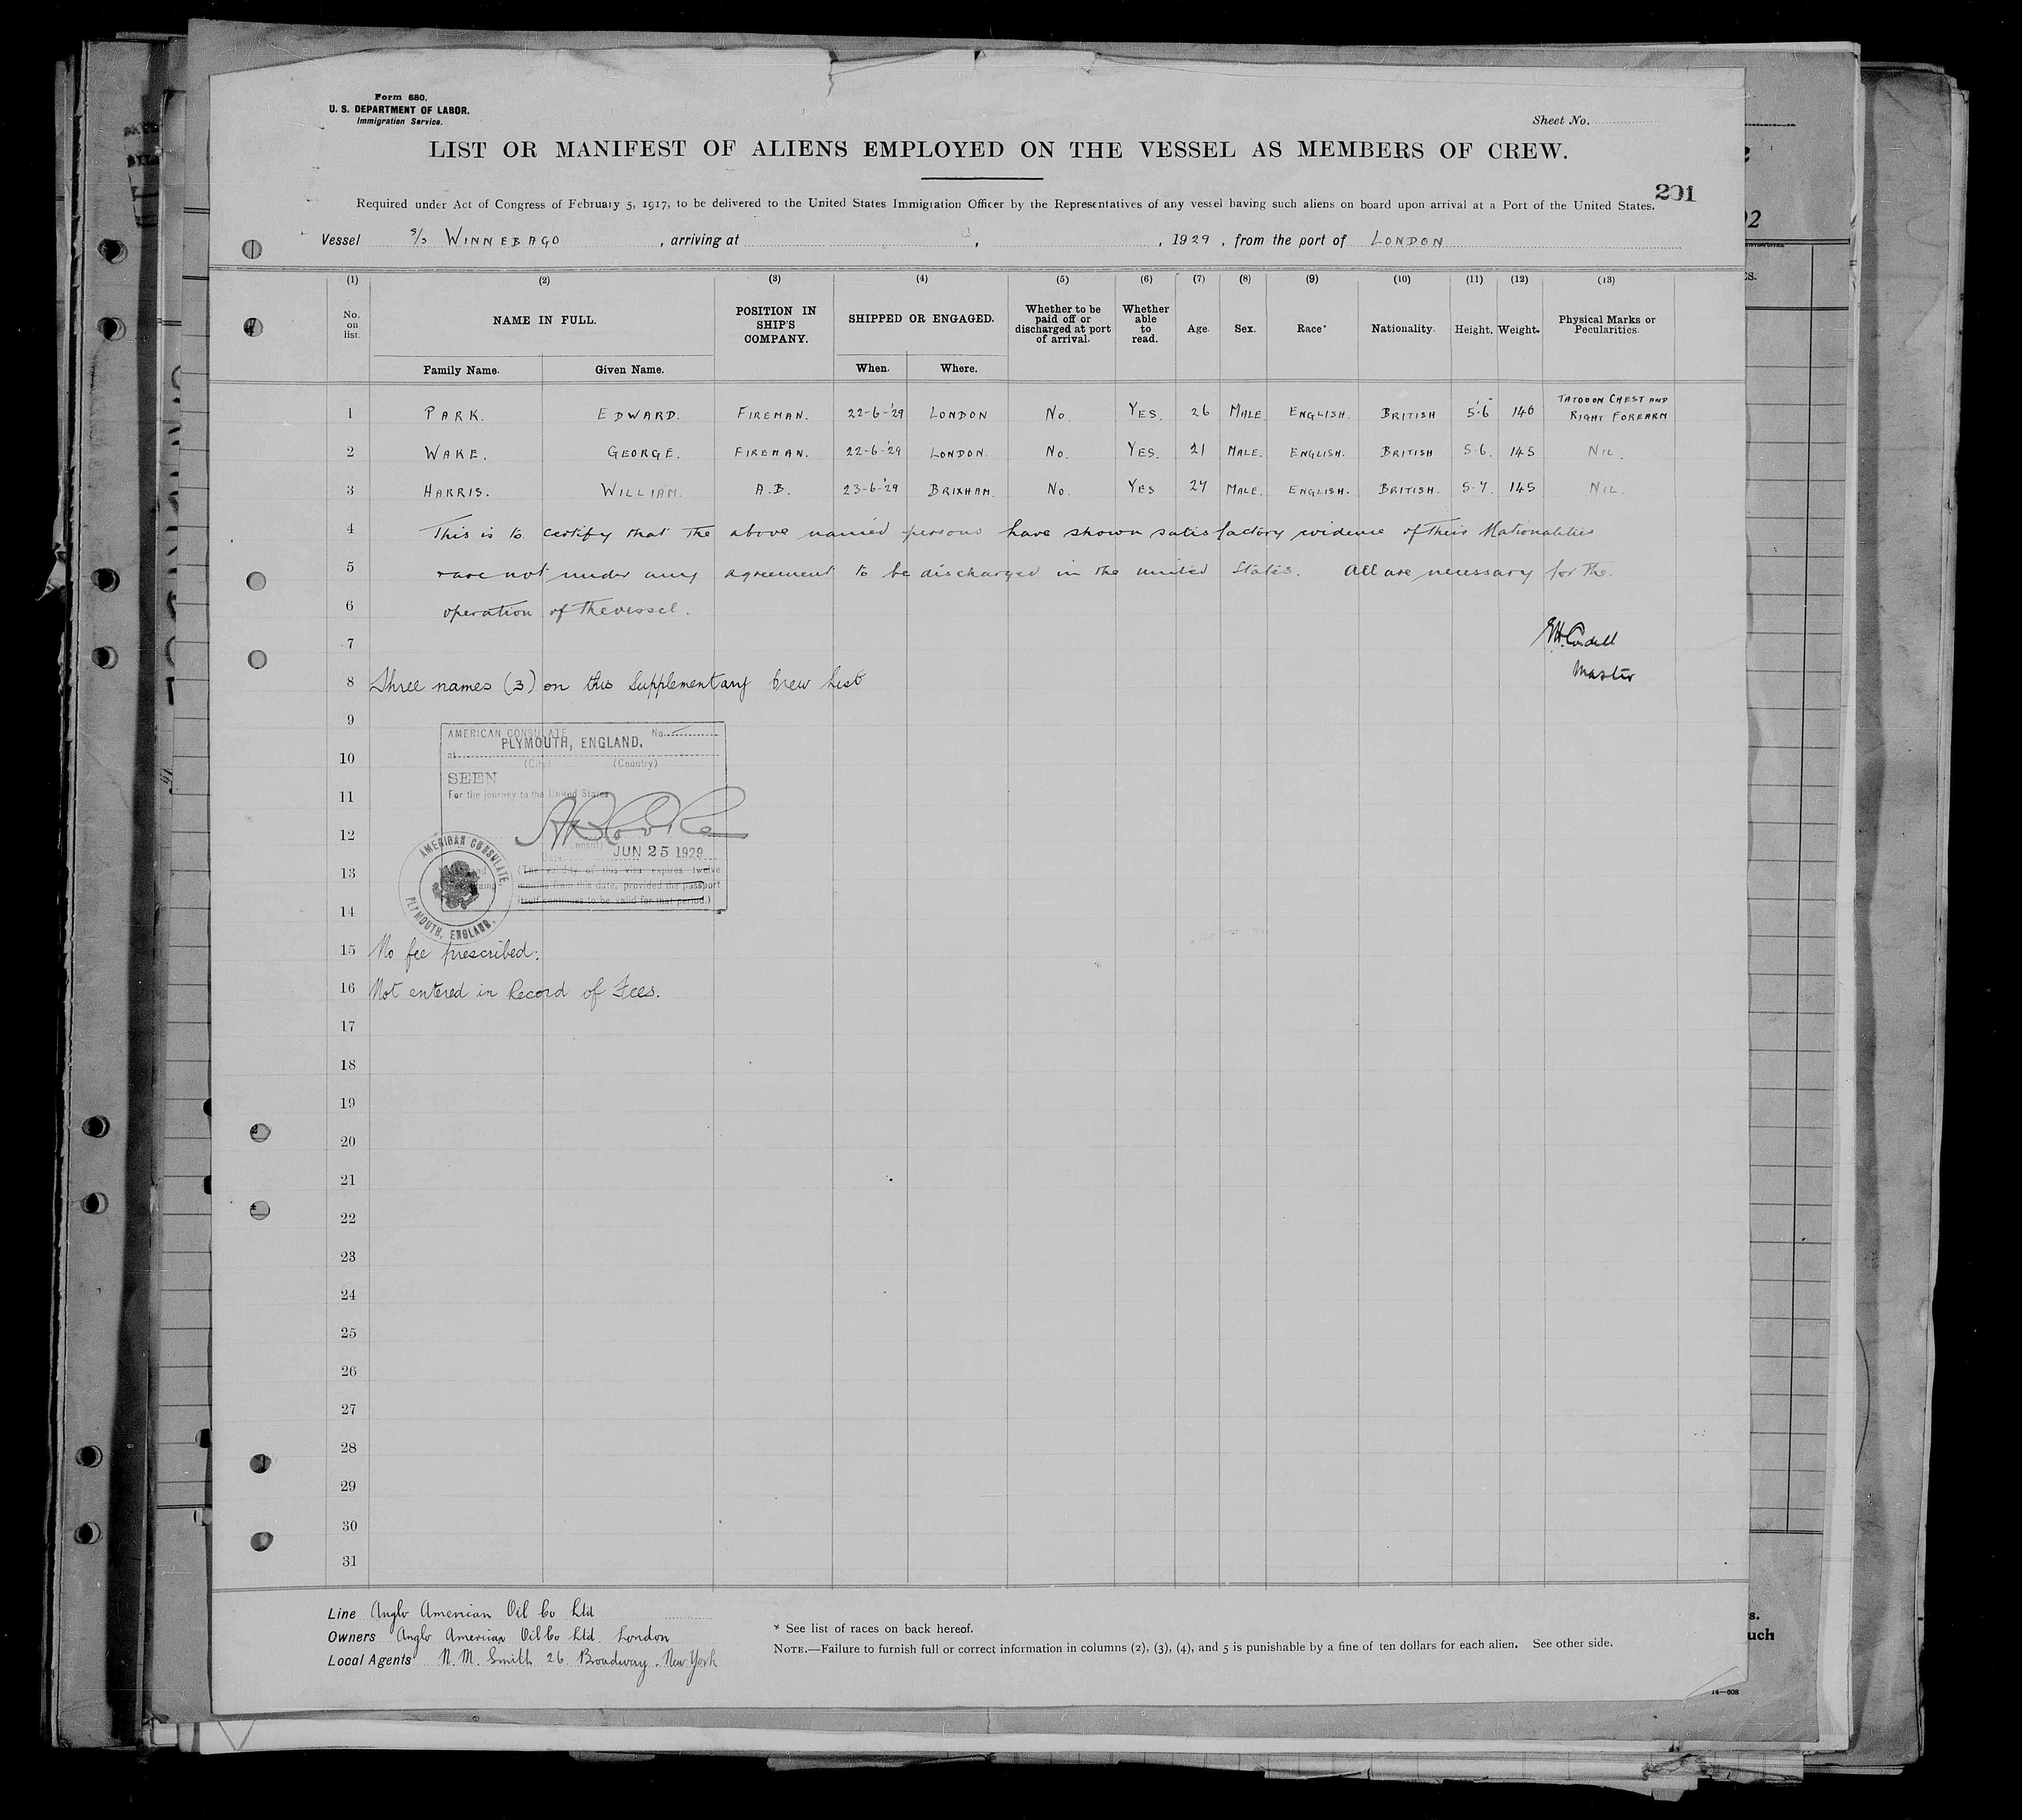 Form 680.
U. S. DEPARTMENT OF LABOR.
Immigration Service.
Sheet No.
LIST OR MANIFEST OF ALIENS EMPLOYED ON THE VESSEL AS MEMBERS OF CREW.
201
Required under Act of Congress of February 5, 1917, to be delivered to the United States Immigration Officer by the Representatives of any vessel having such aliens on board upon arrival at a Port of the United States.
Vessel S/S WINNEBAGO, arriving at , , 1929, from the port of LONDON
(1) (2) (3) (4) (5) (6) (7) (8) (9) (10) (11) (12) (13)
No. on list. NAME IN FULL. POSITION IN SHIP'S COMPANY. SHIPPED OR ENGAGED. Whether to be paid off or discharged at port of arrival. Whether able to read. Age. Sex. Race* Nationality. Height. Weight. Physical Marks or Pecularities.
Family Name. Given Name. When. Where.
1 PARK. EDWARD. FIREMAN. 22-6-'29 LONDON No. YES. 26 MALE ENGLISH. BRITISH 5'-6" 140 TATOOON CHEST AND RIGHT FOREARM
2 WAKE. GEORGE. FIREMAN. 22-6-'29 LONDON. No. YES. 21 MALE. ENGLISH. BRITISH 5-6. 145 NIL.
3 HARRIS. WILLIAM. A.B. 23-6-'29 BRIXHAM. No. YES 27 MALE. ENGLISH. BRITISH. 5-7. 145 NIL.
4 This is to certify that the above named persons have shown satisfactory evidence of their Nationalities
5 + are not under any agreement to be discharged in the united States. All are necessary for the
6 operation of the vessel.
7
Master
8 Three names (3) on this Supplementary Crew List
9
AMERICAN CONSULATE No.
PLYMOUTH, ENGLAND.
10
at
(City) (Country)
SEEN
11 For the journey to the United States
12
(Consul)
Date JUN 25 1929
AMERICAN CONSULATE
PLYMOUTH, ENGLAND.
13 (The validity of this visa expires twelve
months from this date, provided the passport
itself continues to be valid for that period.)
14
15 No fee prescribed.
16 Not entered in Record of Fees.
17
18
19
20
21
22
23
24
25
26
27
28
29
30
31
Line Anglo American Oil Co Ltd
Owners Anglo American Oil Co Ltd. London
Local Agents N. M. Smith 26 Broadway. New York
* See list of races on back hereof.
NOTE.—Failure to furnish full or correct information in columns (2), (3), (4), and 5 is punishable by a fine of ten dollars for each alien. See other side.
14—608